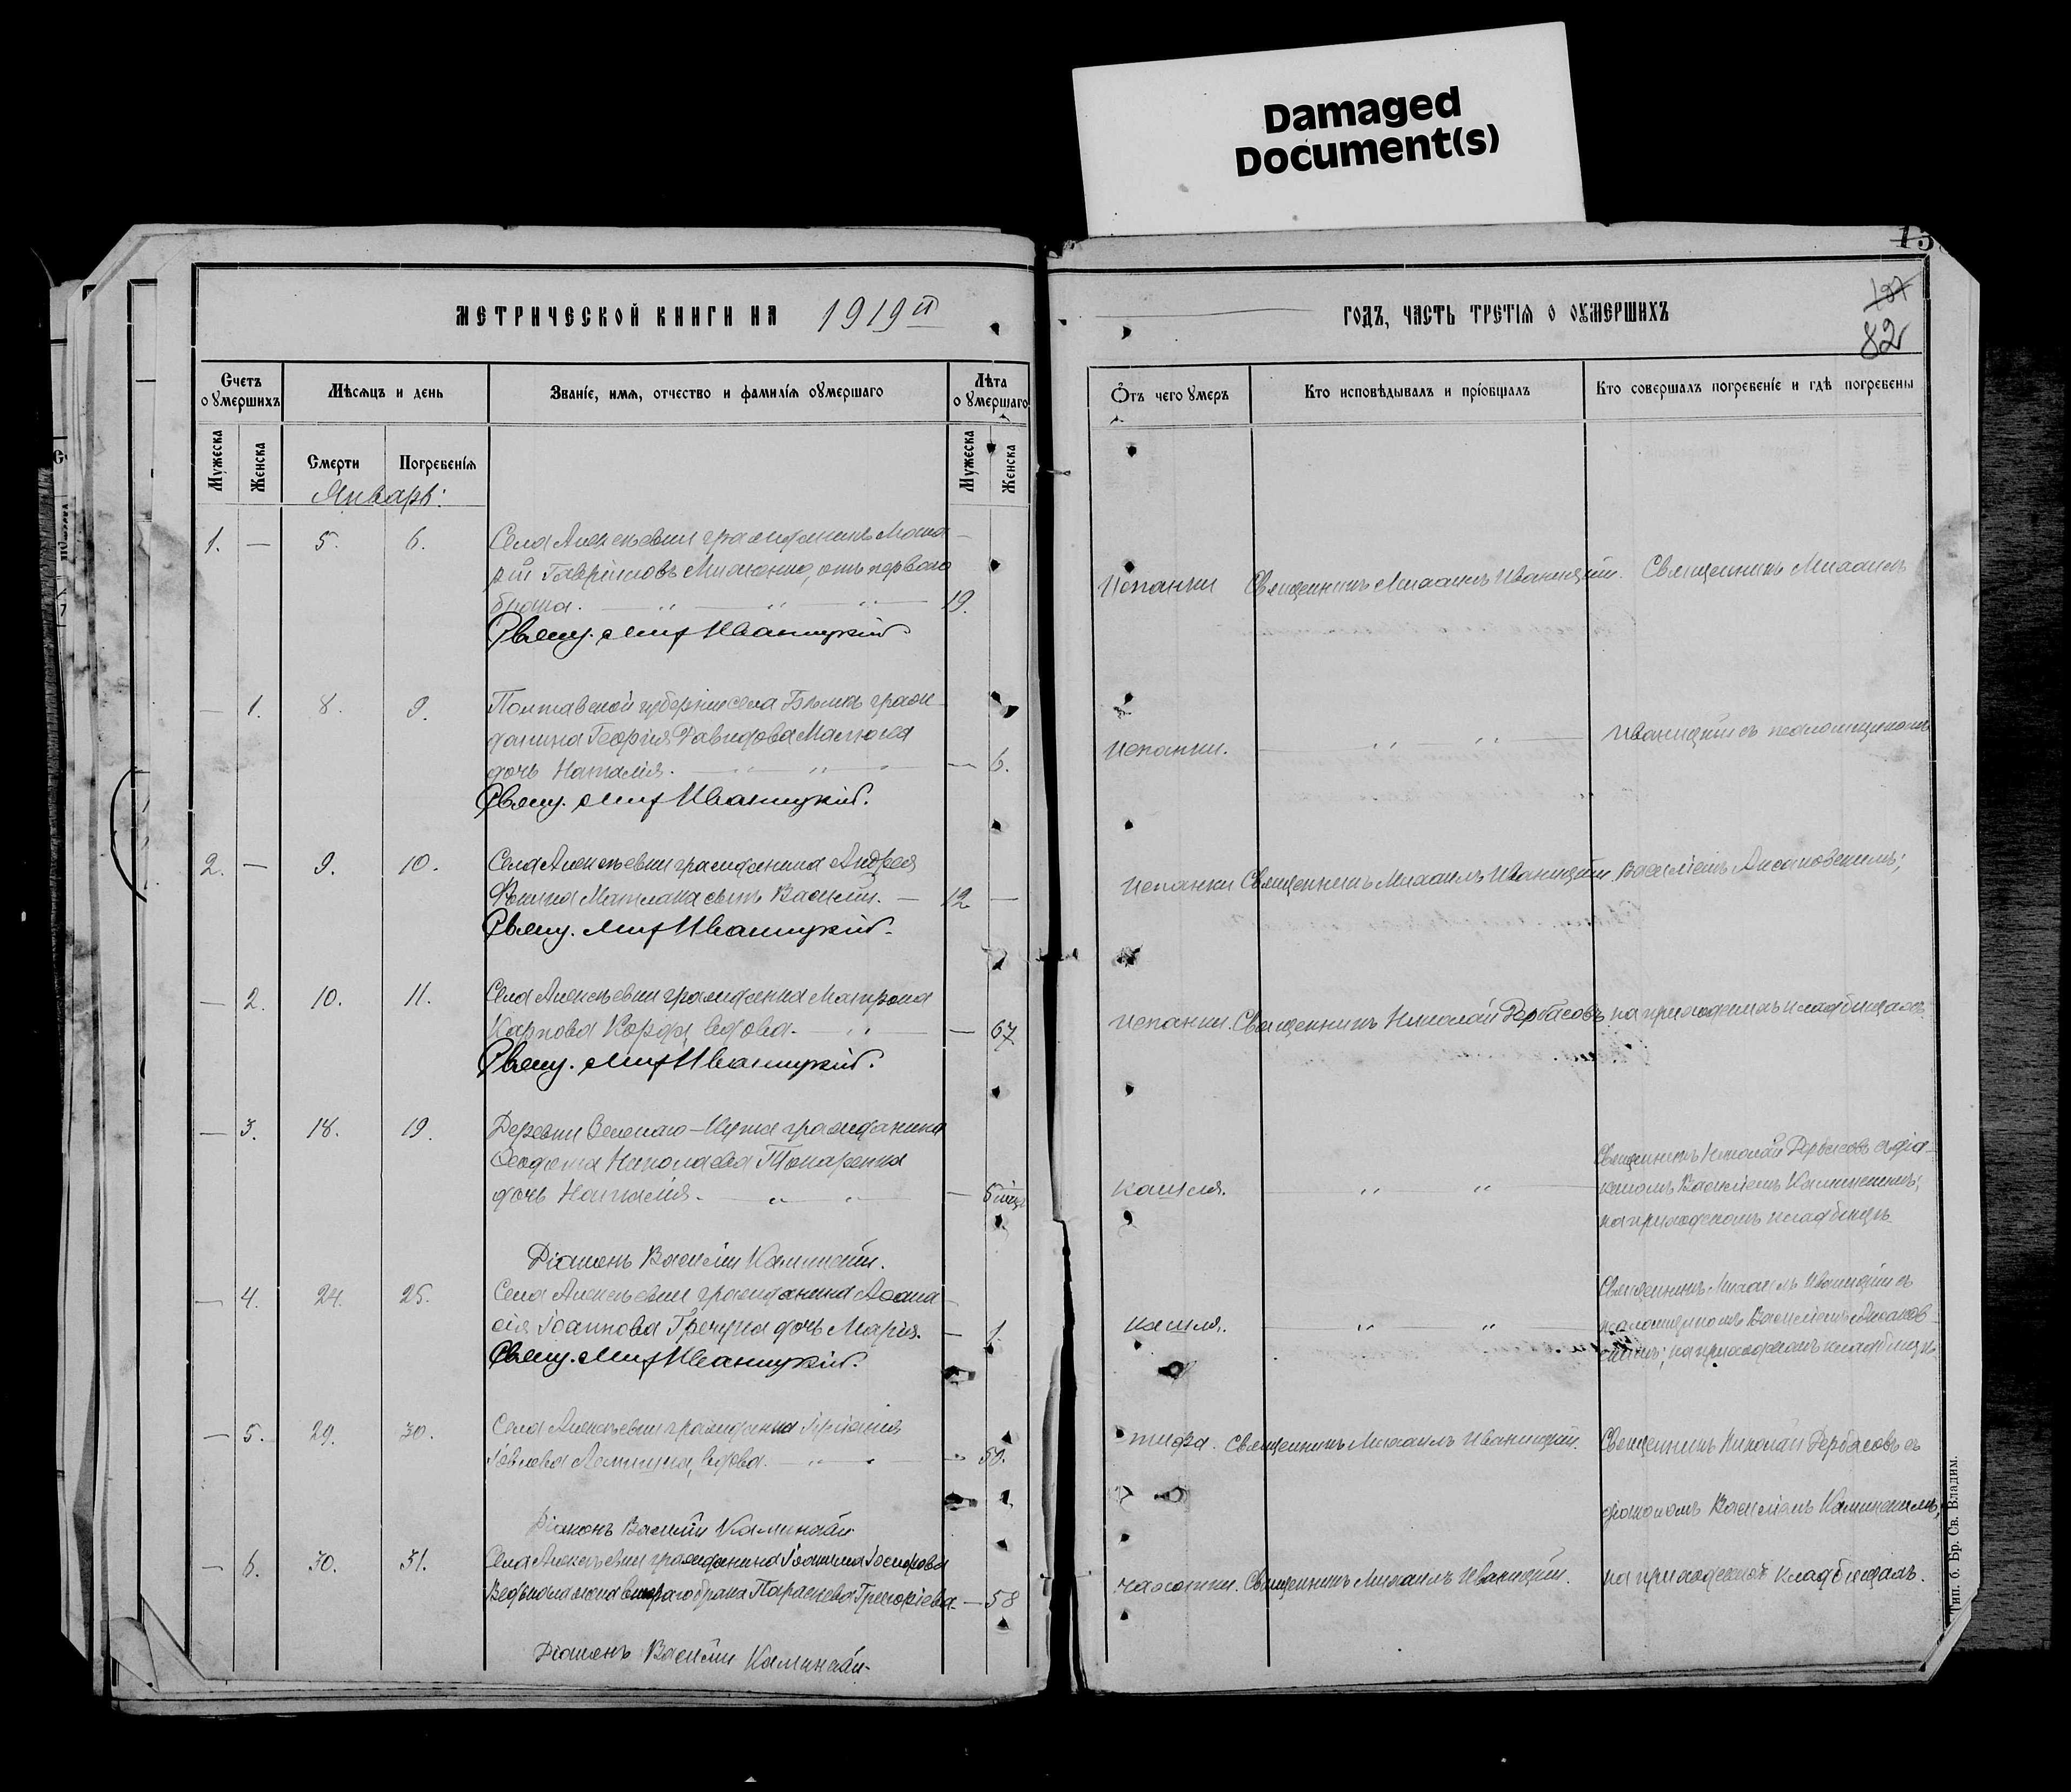 Damaged
Document(s)
МЕТРИЧЕСКОЙ КНИГИ НА 1919й
Счетъ оумершихъ
Мѣсяцъ и день
Званіе, имя, отчество и фамилія оумершаго
Лѣта оумершаго
Мужеска
Женска
Смерти
Погребенія
Мужеска
Женска
Январь:
1. — 5. 6. Села Алексѣевки гражданинъ
Гавріиловъ перваго
брака. — 19.
Свящ. Мих Иваницкій.
— 1. 8. 9. Полтавской губерніи села граж-
данина Георгія Давидова
дочь Наталія. — 6.
Свящ. Мих Иваницкій.
2. — 9. 10. Села Алексѣевки гражданина Андрея
сынъ Василій. — 12 —
Свящ. Мих Иваницкій.
— 2. 10. 11. Села Алексѣевки гражданка Матрона
Карпова вдова. — 67
Свящ. Мих Иваницкій.
— 3. 18. 19. Деревни гражданина
Николаева Токаренка
дочь Наталія. — 6 мѣс.
Діаконъ Василій Каминскій.
— 4. 24. 25. Села Алексѣевки гражданина Аѳана-
сія Іоаннова Гречуна дочь Марія. — 1.
Свящ. Мих Иваницкій.
— 5. 29. 30. Села Алексѣевки гражданка
вдова. — 50.
Діаконъ Василій Каминскій
— 6. 30. 31. Села Алексѣевки гражданина Іосифова
жена втораго брака Параскева Григоріева. — 58
Діаконъ Василій Каминскій.
ГОДЪ, ЧАСТЬ ТРЕТІЯ О ОУМЕРШИХЪ
13
107
82
Отъ чего умеръ
Кто исповѣдывалъ и пріобщалъ
Кто совершалъ погребеніе и гдѣ погребены
Испанки Священникъ Михаилъ Иваницкій. Священникъ Михаилъ
Испанки. — Иваницкій съ псаломщикомъ
Испанки Священникъ Михаилъ Иваницкій Василіемъ
Испанки. Священникъ Николай Дербасовъ на приходскихъ кладбищахъ.
Священникъ Николай Дербасовъ съ діа-
кашля. — кономъ Василіемъ Каминскимъ;
на приходскомъ кладбищѣ.
Священникъ Михаилъ Иваницкій съ
кашля. — псаломщикомъ Василіемъ
на приходскомъ кладбищѣ.
тифа. Священникъ Михаилъ Иваницкій. Священникъ Николай Дербасовъ съ
діакономъ Василіемъ Каминскимъ;
чахотки. Священникъ Михаилъ Иваницкій. на приходскомъ кладбищахъ.
Тип. б. Бр. Св. Владим.